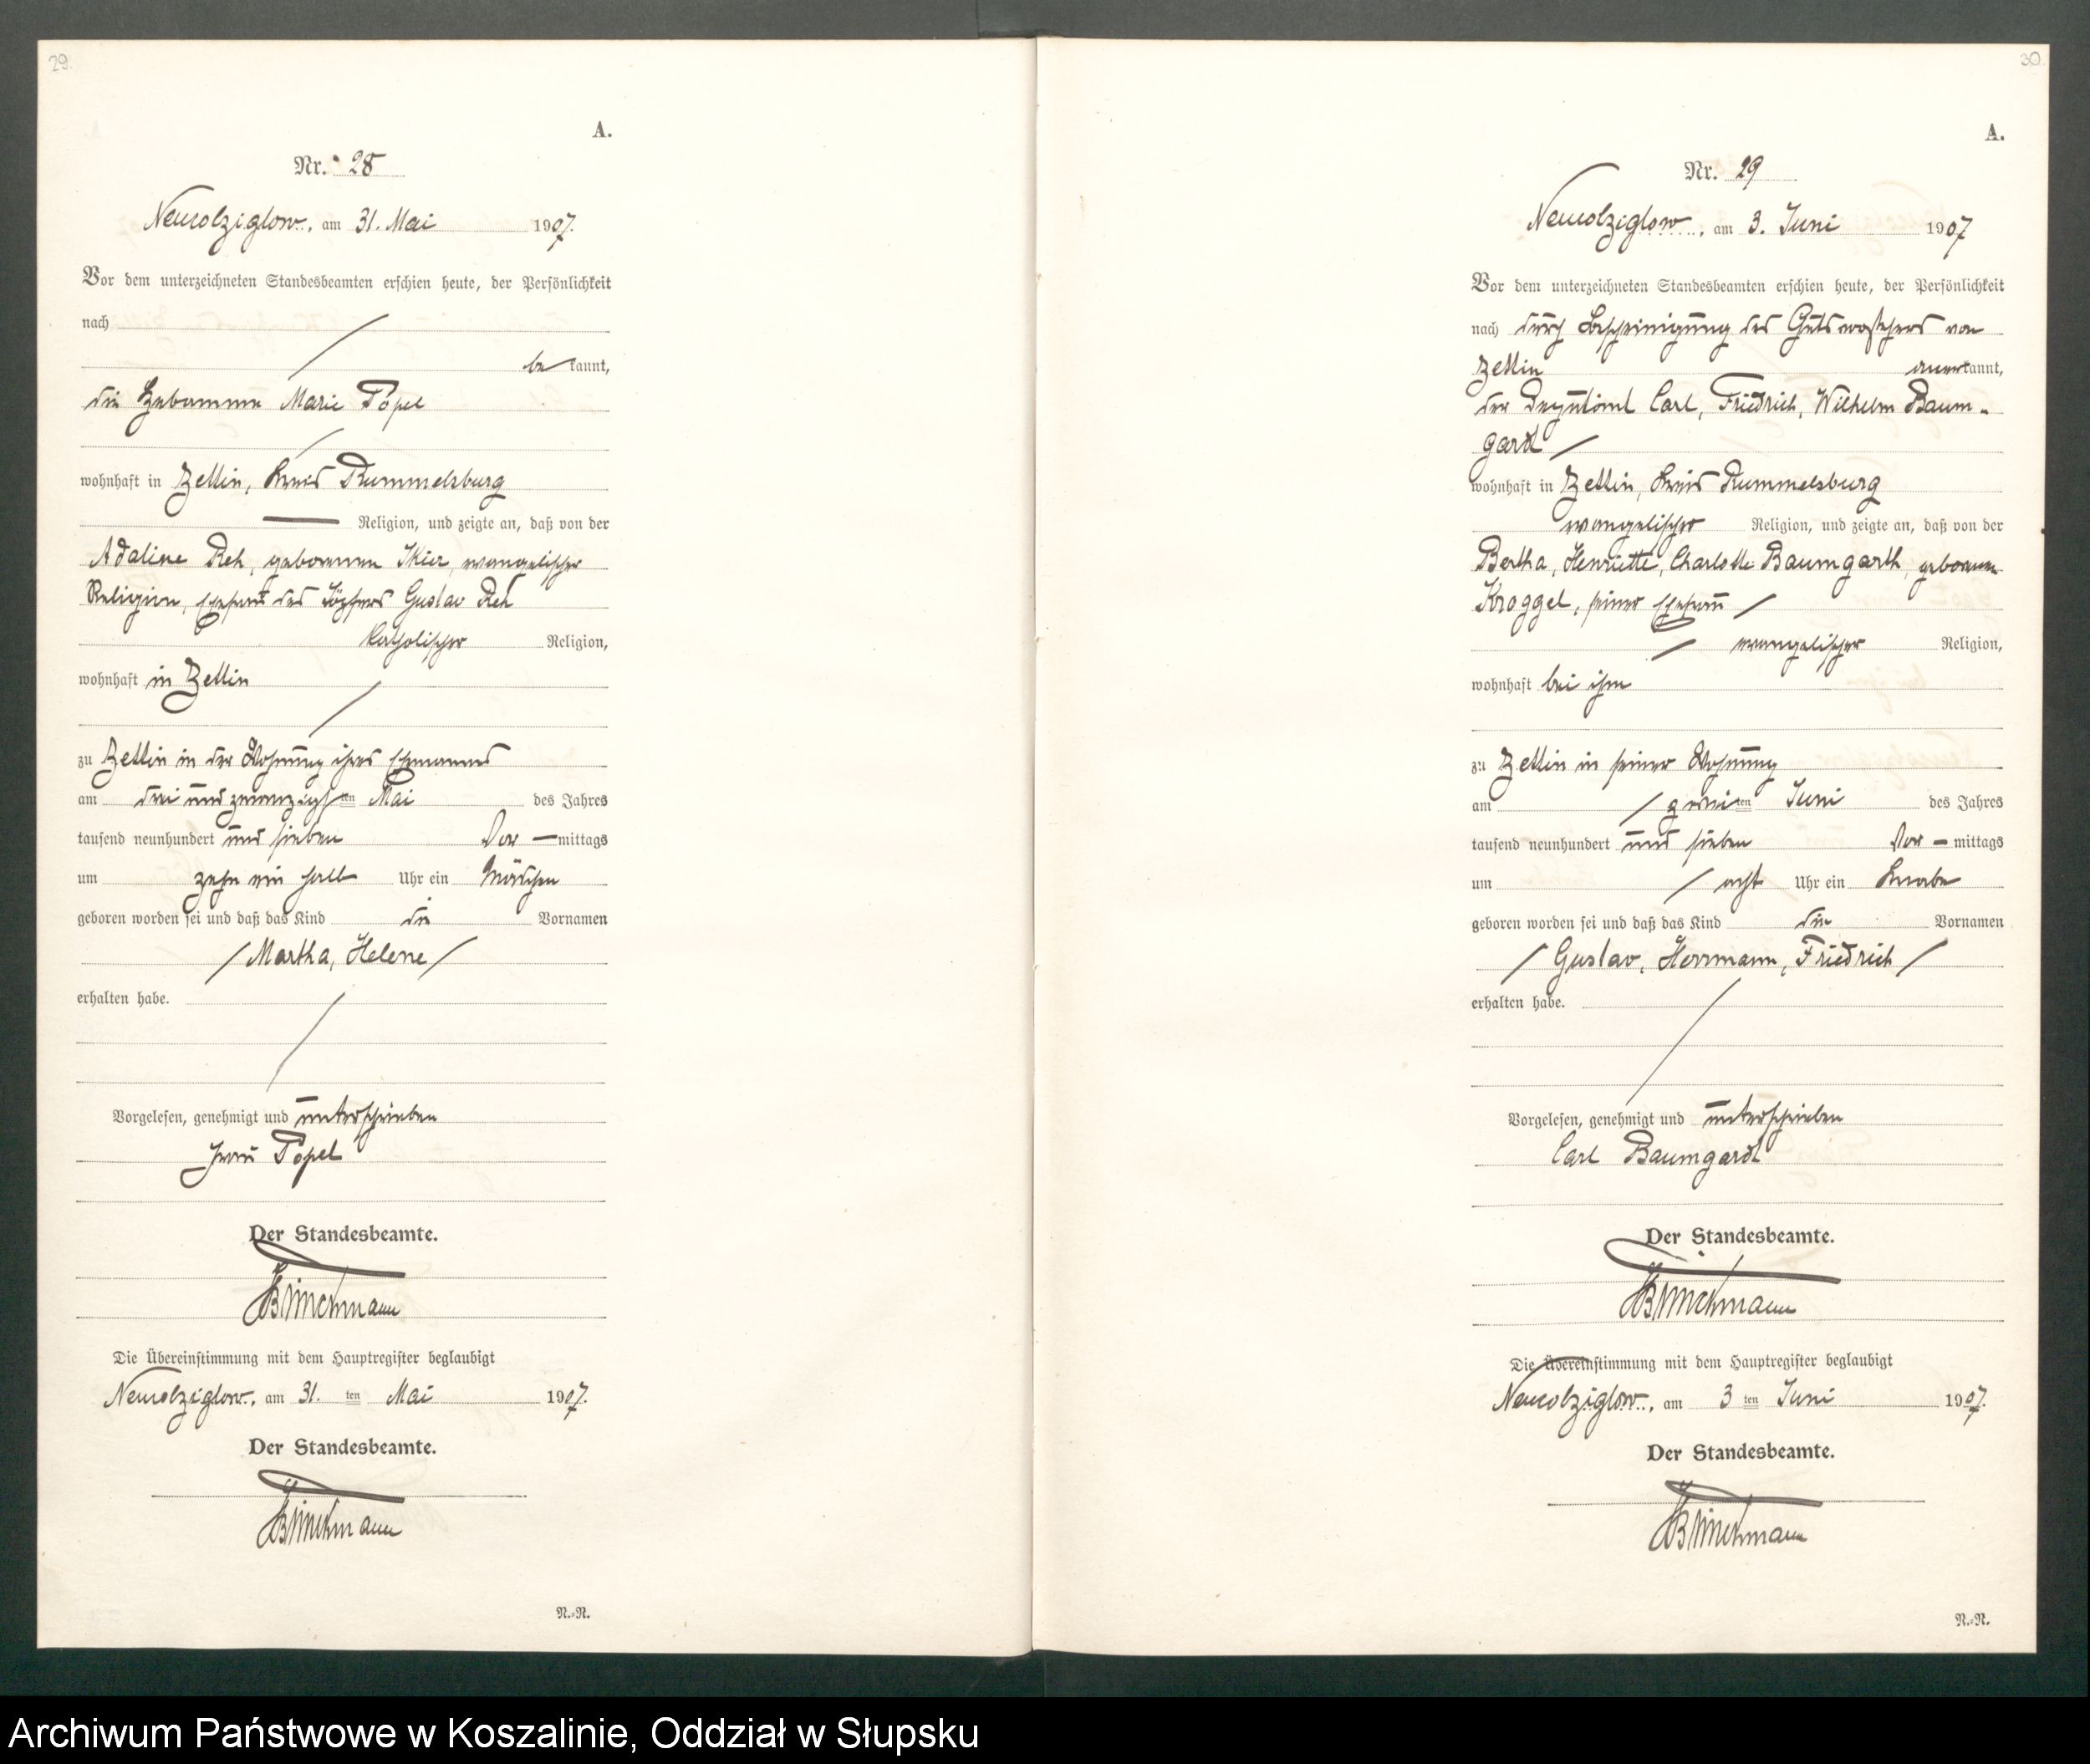 29.
A.
Nr. 28
Neukolziglow, am 31. Mai 1907.
Vor dem unterzeichneten Standesbeamten erschien heute, der Persönlichkeit
nach
be kannt,
die Hebamme Marie Pöpel
wohnhaft in Zettin, Kreis Rummelsburg
Religion, und zeigte an, daß von der
Adaline Reh, geborenen, evangelischer
Religion, Ehefrau des Töpfers Gustav Reh
katholischer Religion,
wohnhaft in Zettin
zu Zettin in der Wohnung ihres Ehemannes
am drei und zwanzigsten Mai des Jahres
tausend neunhundert und sieben Vor — mittags
um zehn ein halb Uhr ein Mädchen
geboren worden sei und daß das Kind die Vornamen
Martha, Helene
erhalten habe.
Vorgelesen, genehmigt und unterschrieben
Frau Pöpel
Der Standesbeamte.
Brinckmann
Die Übereinstimmung mit dem Hauptregister beglaubigt
Neukolziglow, am 31. ten Mai 1907.
Der Standesbeamte.
Brinckmann
N.-N.
30.
A.
Nr. 29
Neukolziglow, am 3. Juni 1907
Vor dem unterzeichneten Standesbeamten erschien heute, der Persönlichkeit
nach durch Bescheinigung des Gutsvorstehers von
Zettin anerkannt,
der Deputant Carl, Friedrich, Wilhelm Baum-
gardt
wohnhaft in Zettin, Kreis Rummelsburg
evangelischer Religion, und zeigte an, daß von der
Bertha, Henriette, Charlotte Baumgarth, geborenen
Kroggel, seiner Ehefrau
evangelischer Religion,
wohnhaft bei ihm
zu Zettin in seiner Wohnung
am zweiten Juni des Jahres
tausend neunhundert und sieben Vor — mittags
um acht Uhr ein Knabe
geboren worden sei und daß das Kind die Vornamen
Gustav, Herrmann, Friedrich
erhalten habe.
Vorgelesen, genehmigt und unterschrieben
Carl Baumgardt
Der Standesbeamte.
Brinckmann
Die Übereinstimmung mit dem Hauptregister beglaubigt
Neukolziglow, am 3 ten Juni 1907.
Der Standesbeamte.
Brinckmann
N.-N.
Archiwum Państwowe w Koszalinie, Oddział w Słupsku